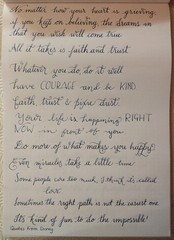 No matter how your heart is grieving,
if you keep on believing, the dreams in
that you wish will come true
All it takes is faith and trust
Whatever you do, do it will
have COURAGE and be KIND
faith, trust & pixie dust
Your life is happening RIGHT
NOW in front of you
Do more of what makes you happy!
Even miracles take a little time
Some people are too much, I think it's called
love
Sometimes the right path is not the easiest one
It's kind of fun to do the impossible!
Quotes from Disney